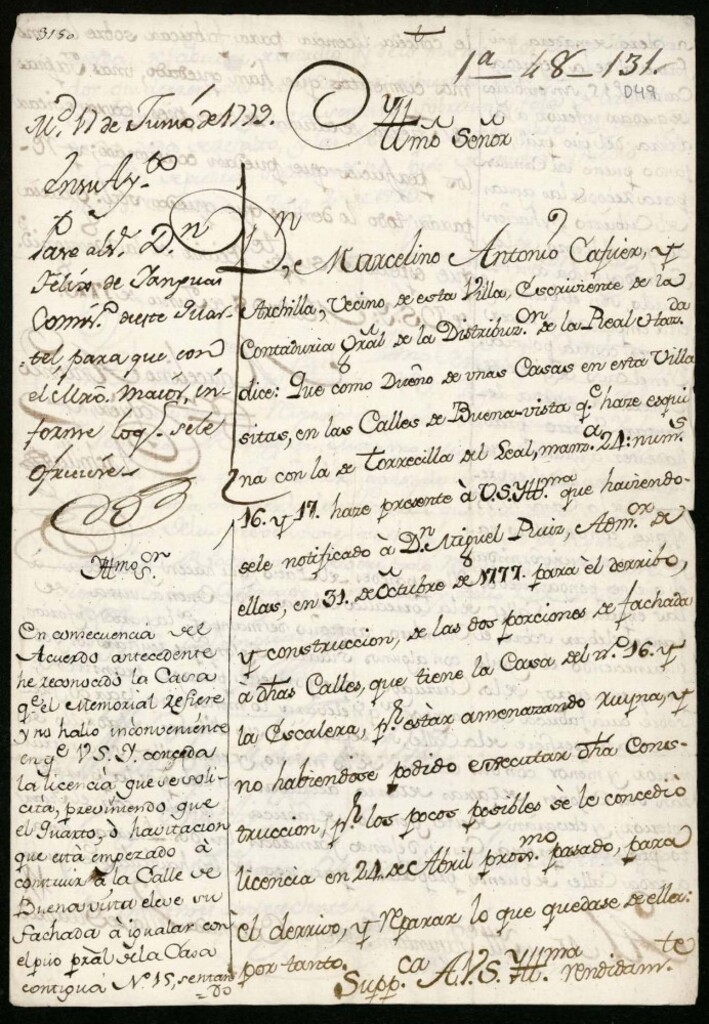 3150
1ª - 48 - 131.
049
Md. 17 de Junio de 1779.
Yllmo Señor
En su Ay.to
Pase al Sr. Dn
Felix de Yanguas
Comisº. de este Quar-
tel, para que con
el Mro. maior, in-
forme lo q. se le
ofreciere
Yllmo Sor.
En consecuencia del
Acuerdo antecedente
he reconocido la Casa
qe. el Memorial refiere
y no hallo inconveniente
en qe V S. Y. conceda
la licencia que se soli-
cita, previniendo que
el Quarto, ò havitacion
que està empezado à
constuir à la Calle de
Buena vista eleve su
fachada à igualar con
el piso pral. de la Casa
contigua Nº 15, sentan
=do
Dn. Marcelino Antonio Cafier, y
Archilla, Vecino de esta Villa, Escriviente de la
Contaduria Gral. de la Distribuzon. de la Real Hazda
dice: Que como Dueño de unas Casas en esta Villa
sitas, en las Calles de Buena-vista q.e haze esqui
na con la de Torrecilla del Leal, manz.a 24: num.s
16. y 17. haze presente à V.S. Yllma. que haviendo-
sele notificado à Dn. Miguel Ruiz, Adm.or de
ellas, en 31. de Octubre de 1777. para èl derribo,
y construccion, de las dos porciones de fachada
a dhas Calles, que tiene la Casa del nº. 16. y
la Escalera, pr. estàr amenazando ruyna, y
no habiendose podido executar dha Cons-
truccion, pr. los pocos posibles se le concediò
licencia en 24. de Abril proxmo. pasado, para
èl derrivo, y reparar lo que quedase de ella:
por tanto.
Supp.ca A.V.S. Yllma rendidam.te